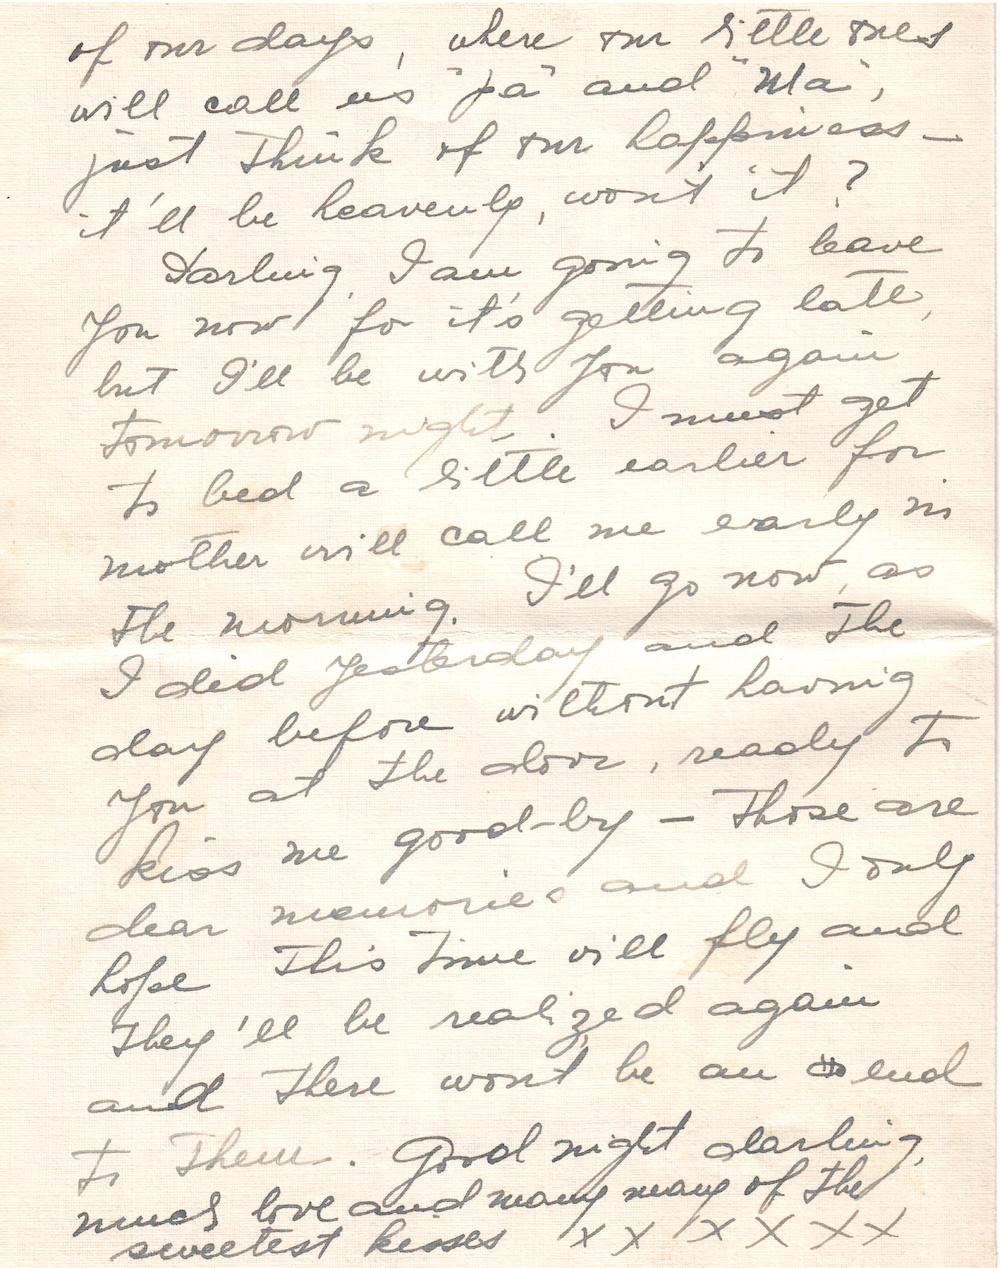 of our days, where our little ones
will call us "pa" and "Ma",
just think of our happiness —
it'll be heavenly, won't it?
Darling, I am going to leave
you now for it's getting late,
but I'll be with you again
tomorrow night. I must get
to bed a little earlier for
mother will call me early in
the morning. I'll go now, as
I did yesterday and the
day before without having
you at the door, ready to
kiss me good-by — Those are
dear memories and I only
hope this time will fly and
they'll be realized again
and there won't be an end
to them. Good night darling,
much love and many many of the
sweetest kisses x x x x x x